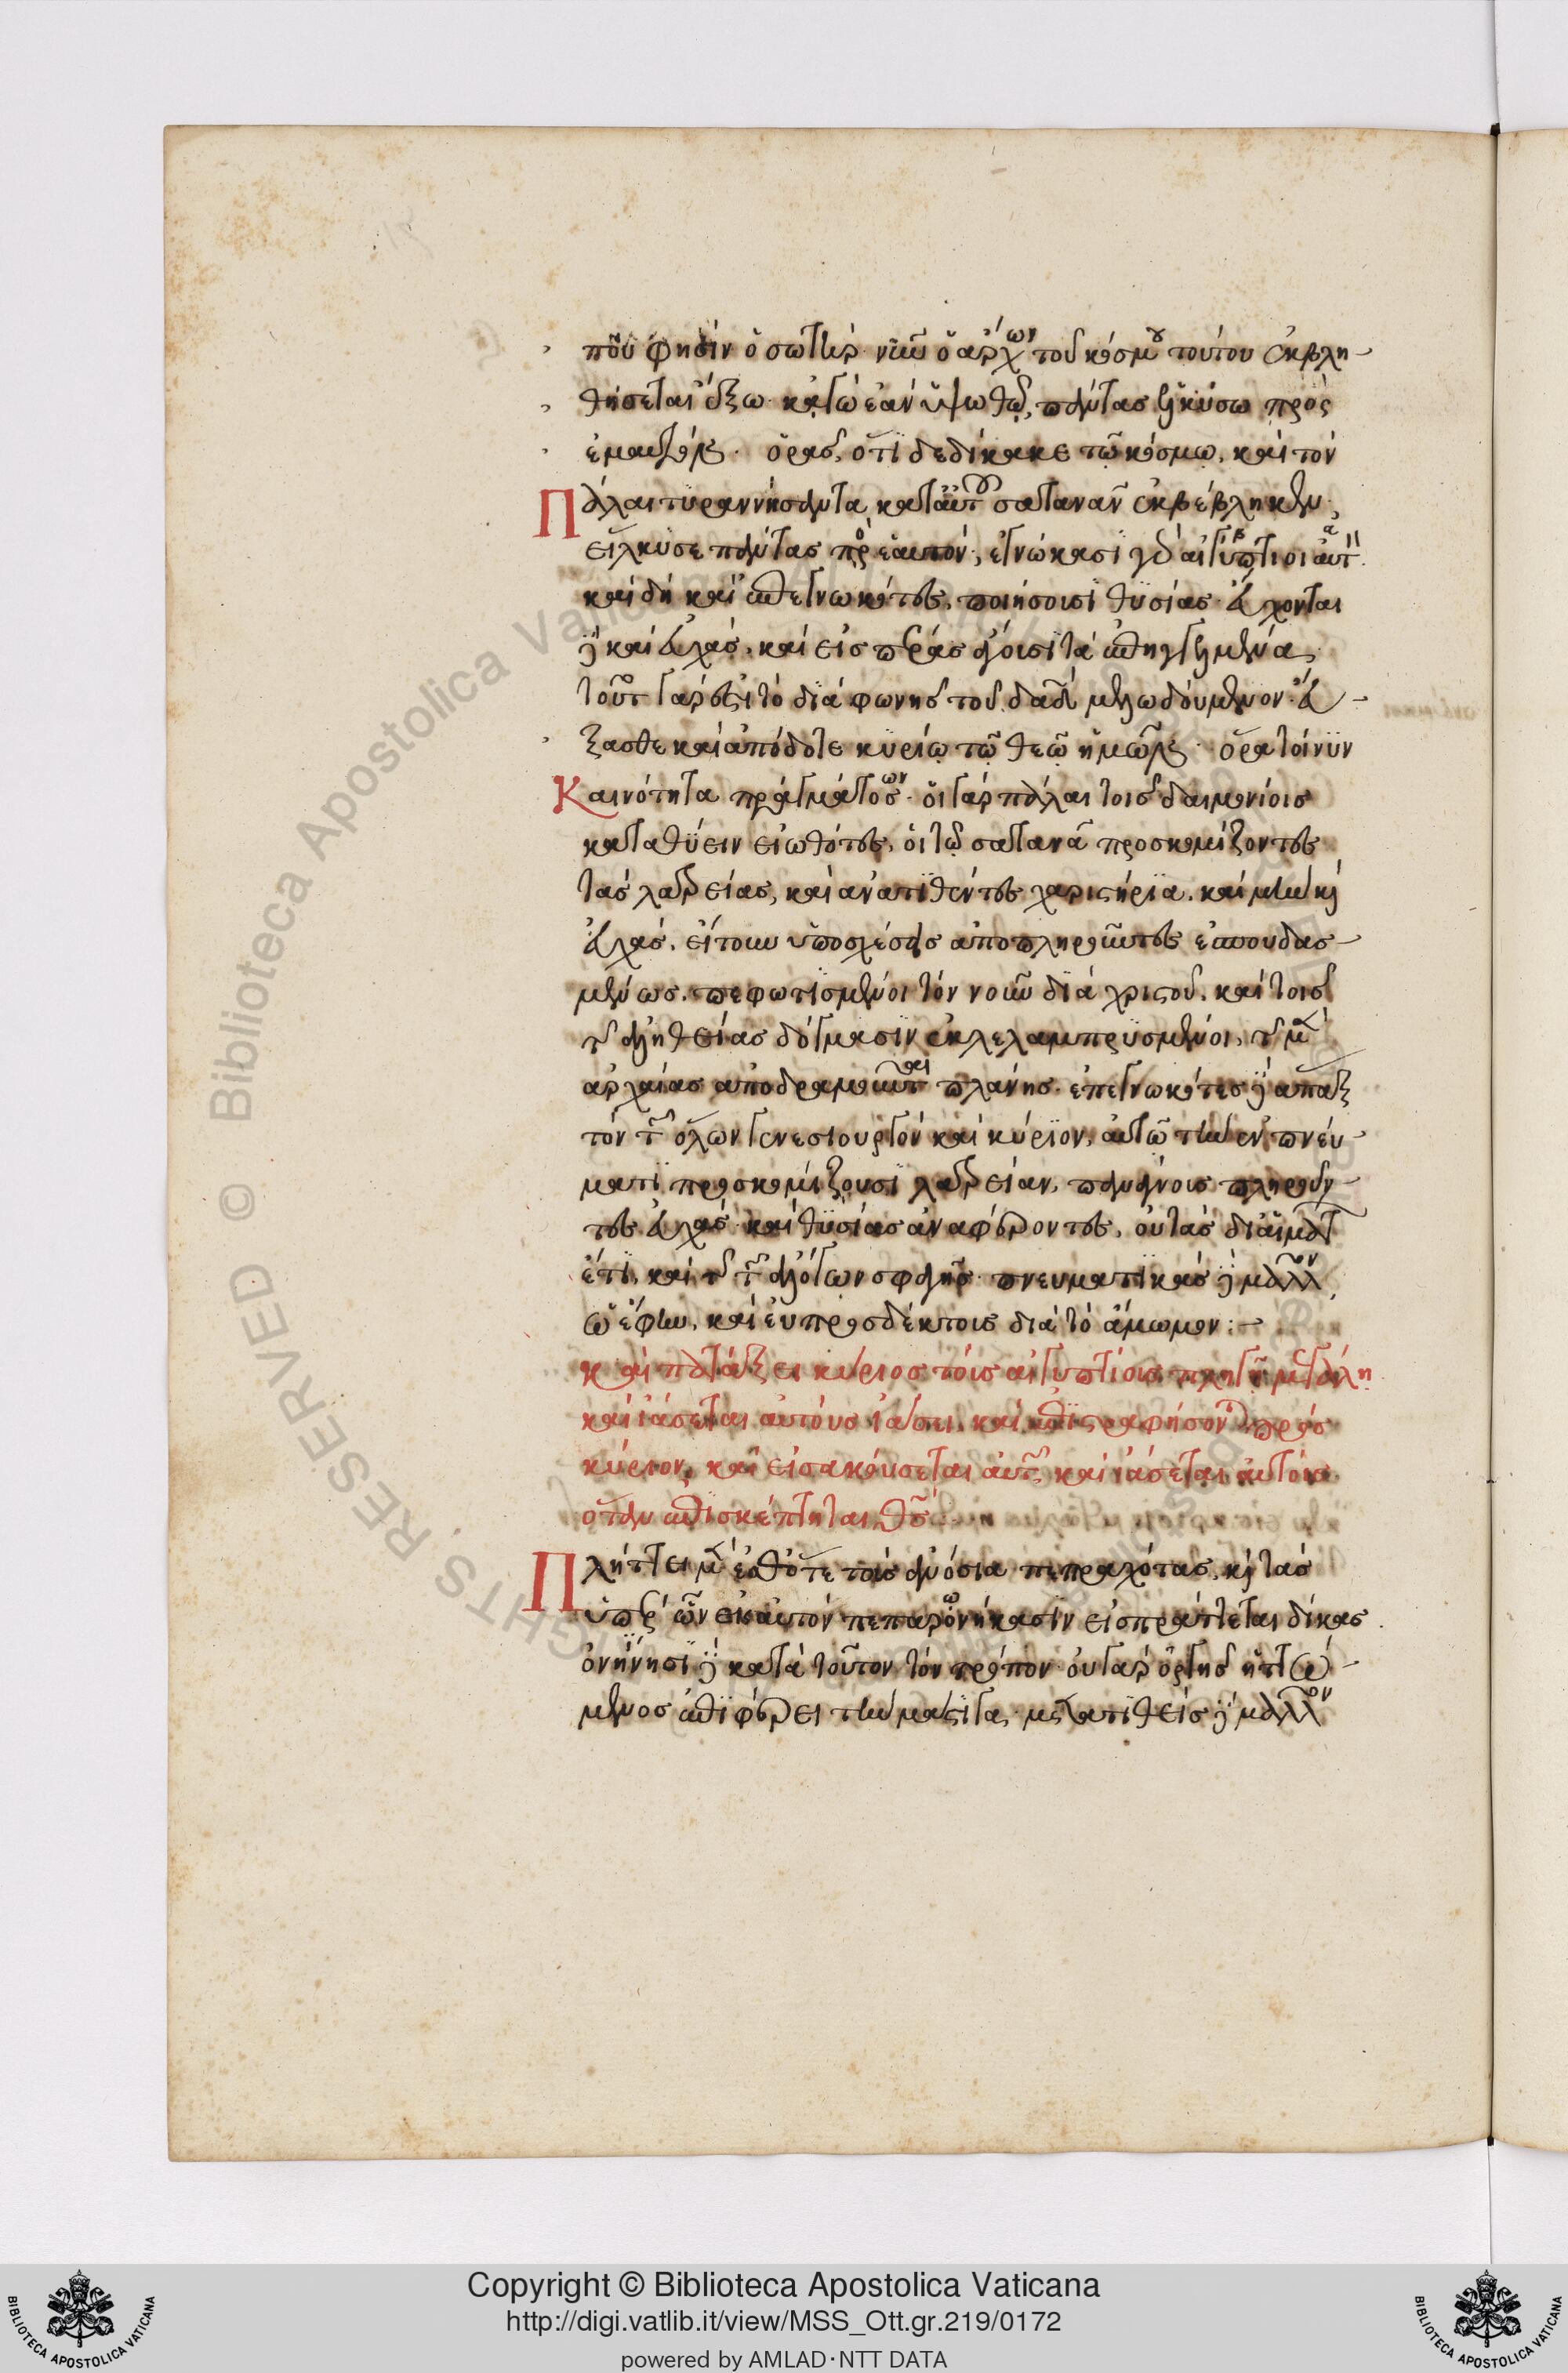 που φησὶν ὁ σωτήρ· νῦν ὁ ἄρχων τοῦ κόσμου τούτου ἐκβλη-
θήσεται ἔξω· κἀγὼ ἐὰν ὑψωθῶ, πάντας ἑλκύσω πρὸς
ἐμαυτόν. ὁρᾶς, ὅτι δεδίκακε τῶ κόσμω, καὶ τὸν
πάλαι τυραννήσαντα κατ' αὐτοῦ σατανᾶν ἐκβέβληκεν·
εἵλκυσε πάντας πρὸς ἑαυτόν, ἐγνώκασι δὲ αἰγύπτιοι αὐτ
καὶ δὴ καὶ ἐπεγνωκότες, ποιήσουσι θυσίας· εὔχονται
δὲ καὶ εὐχάς, καὶ εἰς πέρας ἄγουσι τὰ ἐπηγγελμένα,
τοῦτο γάρ ἐστι τὸ διὰ φωνῆς τοῦ δαδ μελωδούμενον· εὔ-
ξασθε καὶ ἀπόδοτε κυρίω τῶ θεῶ ἡμῶν. ὅρα τοίνυν
Καινότητα πράγματος· οἱ γὰρ πάλαι τοῖς δαιμονίοις
καταθύειν εἰωθότες, οἱ τῶ σατανᾶ προσκομίζοντες
τὰς λατρείας, καὶ ἀνατιθέντες χαριστήρια, καὶ μὴν καὶ
εὐχάς, εἴτουν ὑποσχέσεις ἀποπληροῦντες ἐσπουδασ-
μένως, πεφωτισμένοι τὸν νοῦν διὰ χριστοῦ, καὶ τοῖς
τῆς ἀληθείας δόγμασιν ἐκλελαμπρυσμένοι, τῆς μὲν
ἀρχαίας ἀποδραμοῦνται πλάνης· ἐπεγνωκότες δὲ ἅπαξ
τὸν τῶν ὅλων γενεσιουργὸν καὶ κύριον, αὐτῶ τὴν ἐν πνεύ-
ματι προσκομίζουσι λατρείαν, παναίνοις πληροῦν-
τες εὐχὰς καὶ θυσίας ἀναφέροντες, οὐ τὰς δι' αἱμάτ
ἔτι, καὶ τῆς τῶν ἀλόγων σφαγῆς· πνευματικὰς δὲ μᾶλλον
ὡς ἔφην, καὶ εὐπροσδέκτοις διὰ τὸ ἄμωμον:
καὶ πατάξει κύριος τοῖς αἰγυπτίοις πληγῆ μεγάλη
καὶ ἰάσεται αὐτοὺς ἰάσει, καὶ ἐπιστραφήσονται πρὸς
κύριον, καὶ εἰσακούσεται αὐτῶν, καὶ ἰάσεται αὐτοὺς
ὅταν ἐπισκέπτηται θς
Πλήττει μὲν ἔσθότε τοὺς ἀνόσια πεπραχότας, καὶ τὰς
ὑπὲρ ὧν εἰς αὐτὸν πεπαρωνήκασιν εἰσπράττεται δίκας
ὀνήνησι δὲ κατὰ τοῦτον τὸν τρόπον· οὐ γὰρ ὀργῆς ἡττώ-
μενος ἐπιφέρει τὴν μάστιγα, μετατιθεὶς δὲ μᾶλλον
Copyright © Biblioteca Apostolica Vaticana
http://digi.vatlib.it/view/MSS_Ott.gr.219/0172
powered by AMLAD·NTT DATA